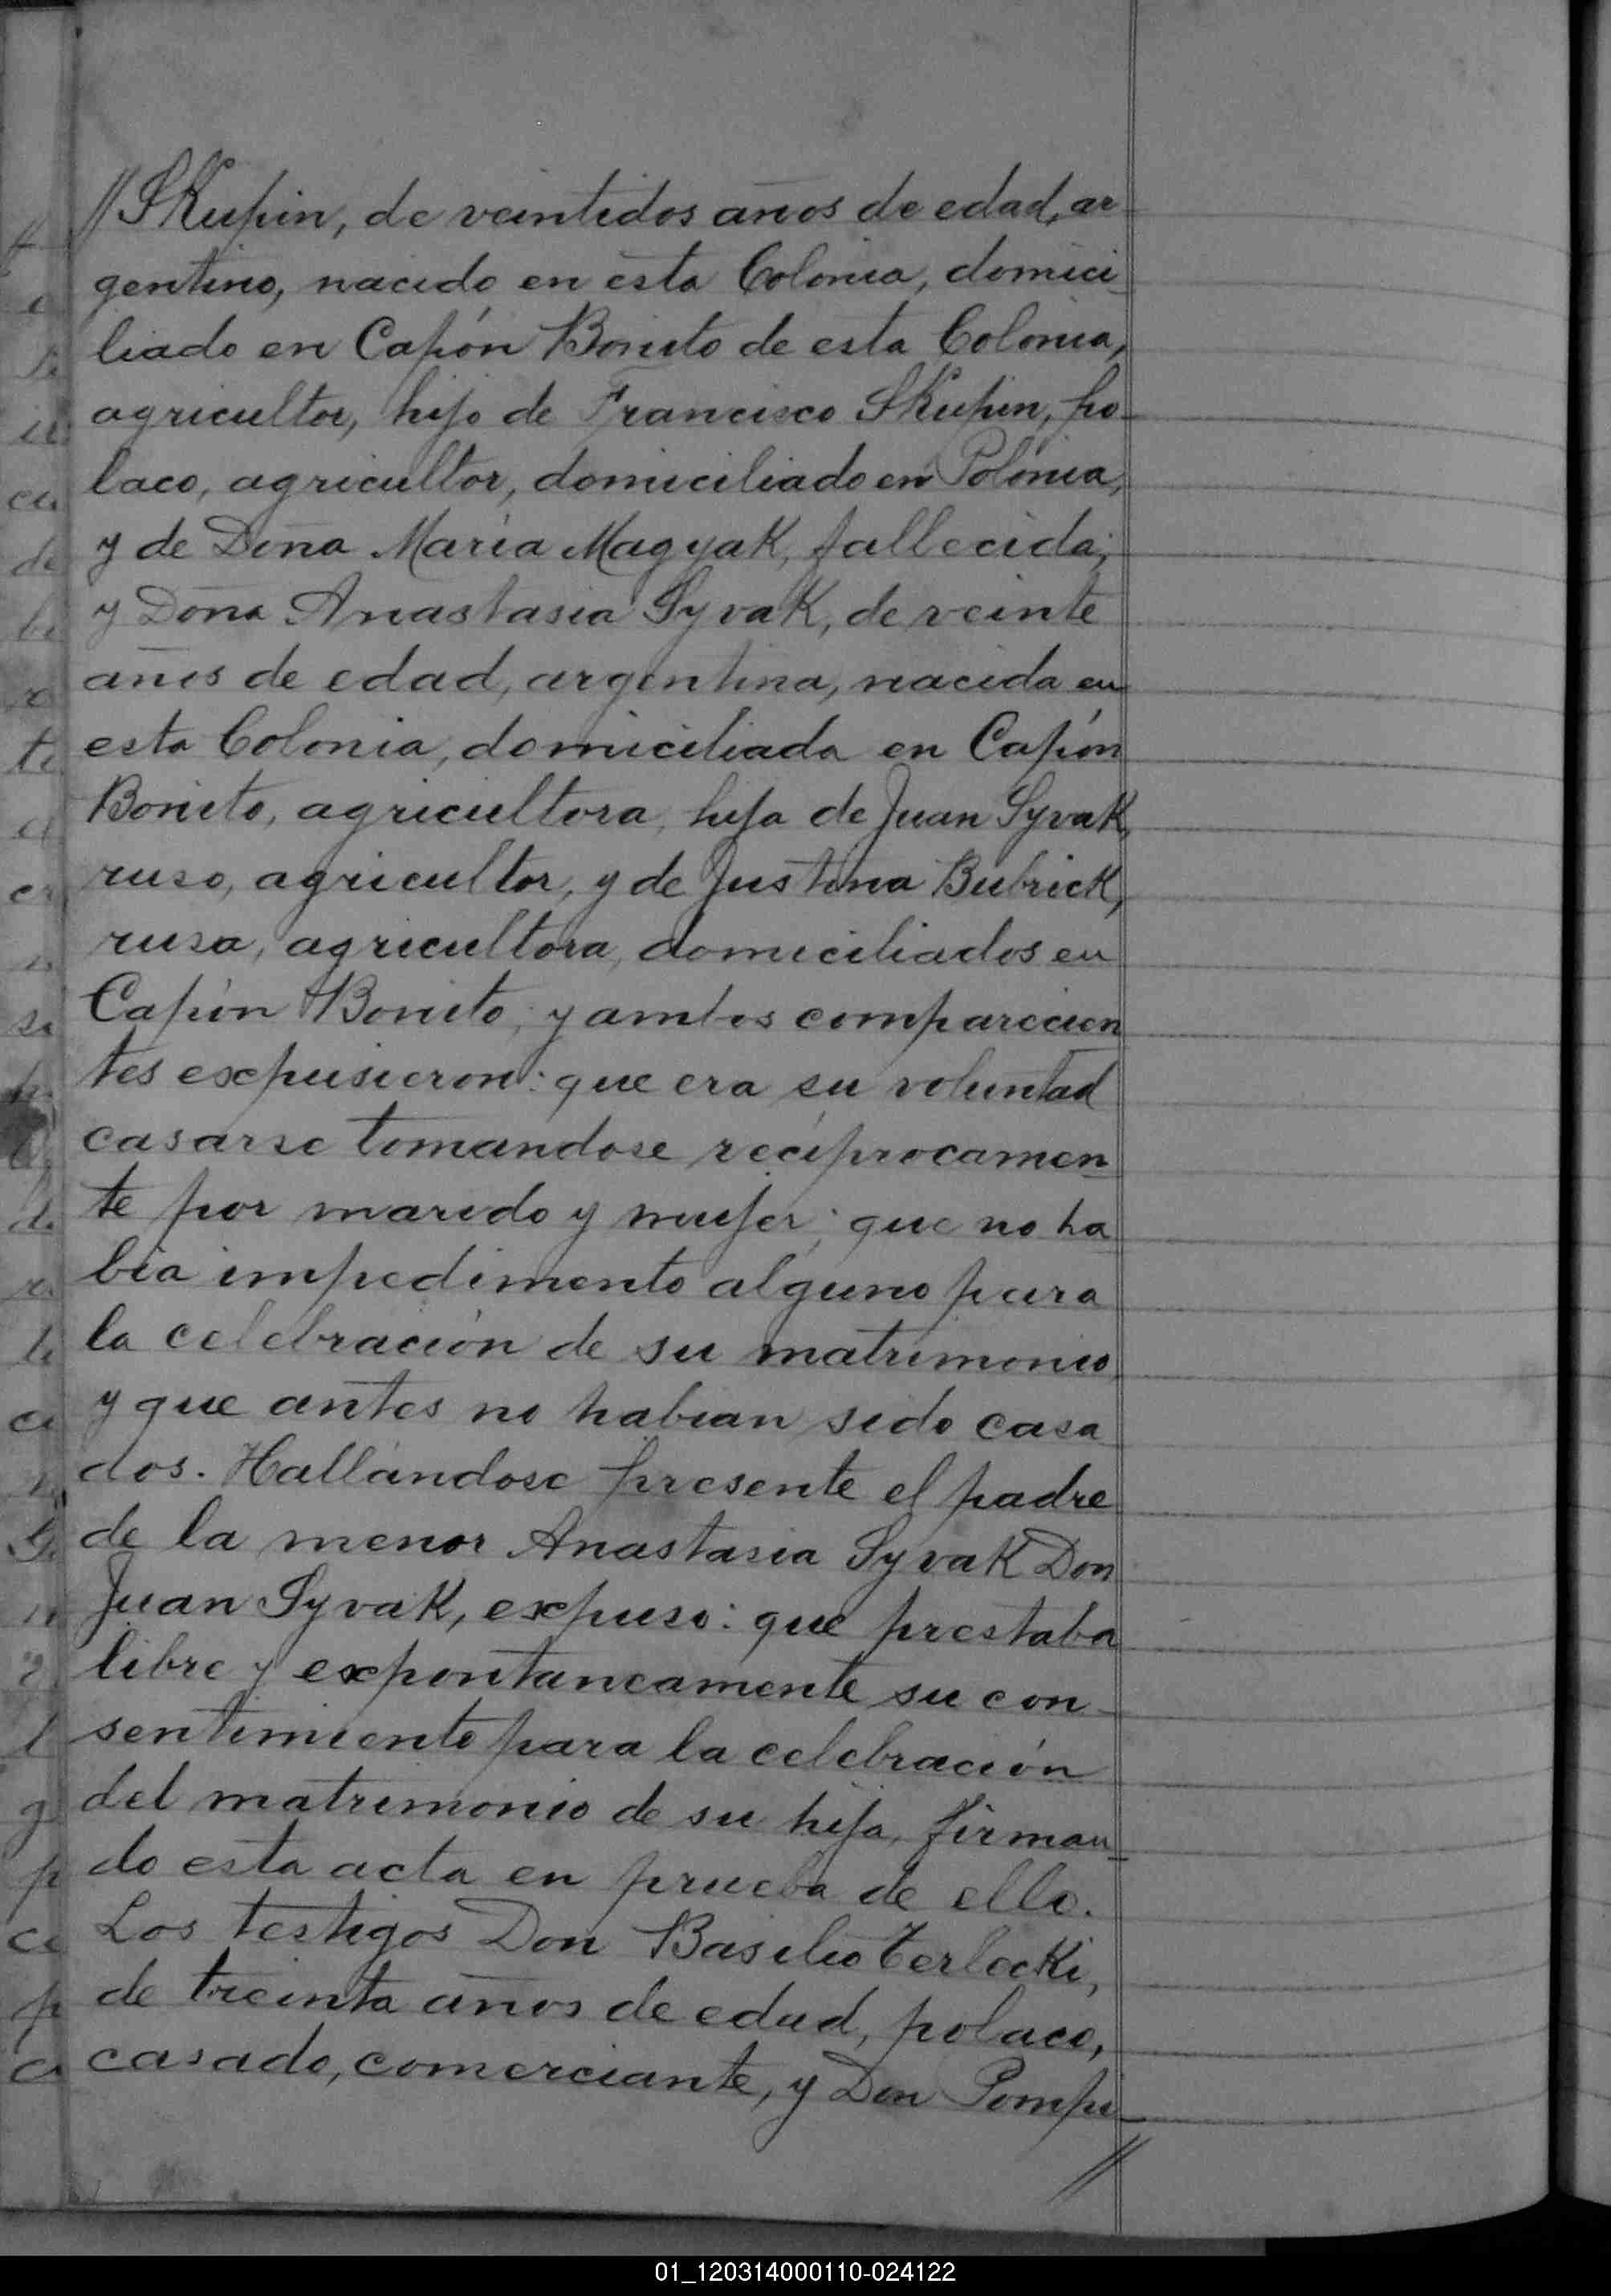 //SKupin, de veintidos años de edad, ar-
gentino, nacido en esta Colonia, domici-
liado en Capón Bonito de esta Colonia,
agricultor, hijo de Francisco SKupin, po-
laco, agricultor, domiciliado en Polónia,
y de Doña María MagyaK, fallecida;
y Doña Anastasia SyvaK, de veinte
años de edad, argentina, nacida en
esta Colonia, domiciliada en Capón
Bonito, agricultora, hija de Juan SyvaK,
ruso, agricultor, y de Justina BubricK,
rusa, agricultora, domiciliados en
Capón Bonito; y ambos comparecien
tes expusieron: que era su voluntad
casarse tomandose recíprocamen
te por marido y mujer; que no ha
bia impedimento alguno para
la celebración de su matrimonio
y que antes no habian sido casa
dos. Hallándose presente el padre
de la menor Anastasia SyvaK Don
Juan SyvaK, expuso: que prestaba
libre y expontaneamente su con-
sentimiento para la celebración
del matrimonio de su hija, firman-
do esta acta en prueba de ello.
Los testigos Don Basilio TerleckKi,
de treinta años de edad, polaco,
casado, comerciante, y Don Pompe-
//
01_120314000110-024122